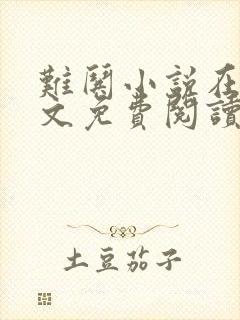 難鬨小説在
文免費閱讀
土豆茄子